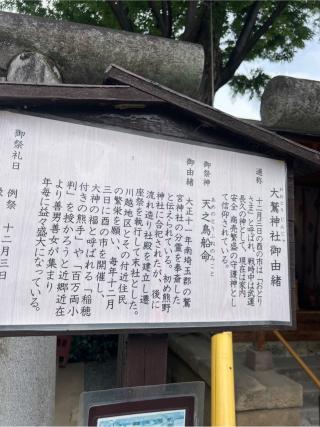 大鷲神社御由緒
おおとりじんじゃごゆいしょ
通称　十二月三日の酉の市は「おとり
さま」と呼ばれ、戦時中は武運
長久の神として、現在は家内
安全・商売繁盛の守護神とし
て信仰されている。
御祭神　天之鳥船命
御由緒　大正十一年南埼玉郡の鷲
宮神社の分霊を奉斎した
と伝えられている。初め熊野
神社に合祀されたが、後に
流れ造り社殿を建立し遷
座祭を執行して末社とした。
川越地区とその付近住民
の繁栄を願い、毎年十二月
三日に酉の市を開催し、
大神の福と呼ばれる「稲穂
付きの熊手」や「百万両小
判」を授かろうと近郷近在
より善男善女が集まり
年毎に益々盛大になっている。
御祭礼日　例祭　十二月三日